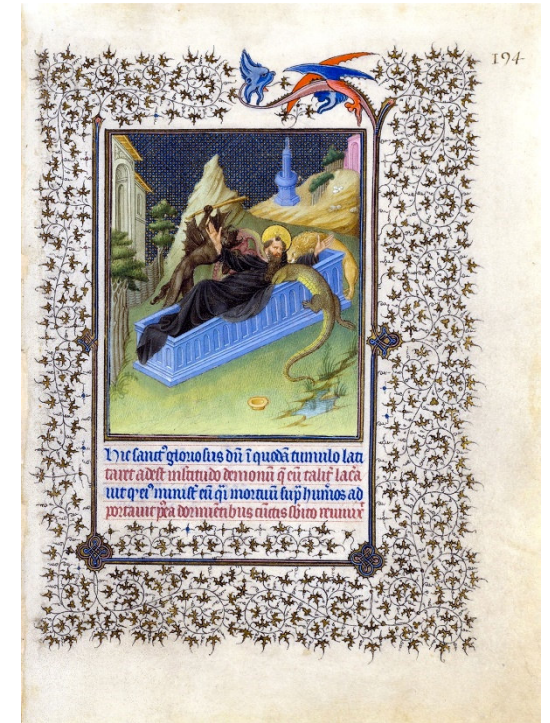 194
Hic sanctꝰ gloriosus dū ī quodā tumulo lati
taret adest mltitudo demonū q̄ eū talit̄ laca
uit qꝫ eiꝰ minist̄ eū q̄i mortuū sup̄ hūos ad
portauit p̄ea dormiētibus cūctis sb̄ito reuuix̄